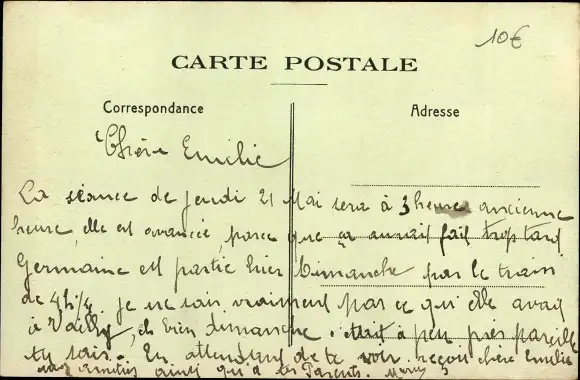 10€
CARTE POSTALE
Correspondance
Adresse
Chère Emilie
La séance de jeudi 21 Mai sera à 3 heures ancienne
heure, elle est avancée, parce que ça aurait fait trop tard
Germaine est partie hier Dimanche par le train
de 4h1/4 je ne sais vraiment pas ce qu'elle avait
à Vailly, eh bien dimanche c'était à peu près pareille
tu sais. En attendant de te voir reçois chère Emilie
mes amitiés ainsi qu'à tes Parents.